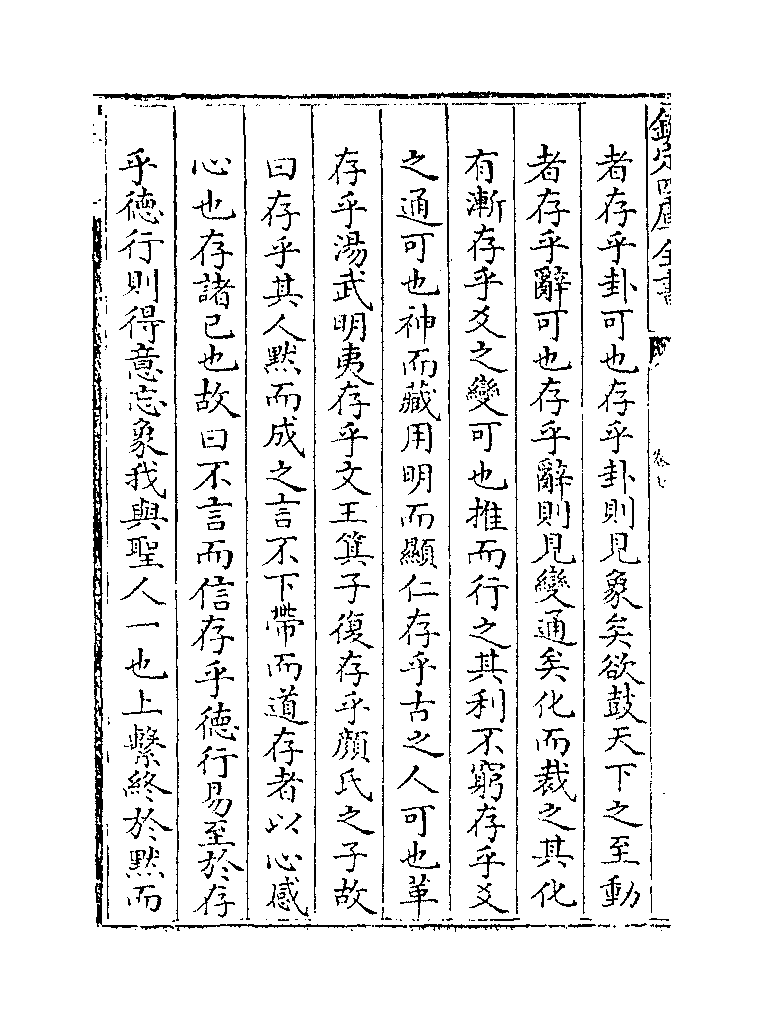 欽定四庫全書
卷七
者存乎卦可也存乎卦則見象矣欲鼓天下之至動
者存乎辭可也存乎辭則見變通矣化而裁之其化
有漸存乎爻之變可也推而行之其利不窮存乎爻
之通可也神而藏用明而顯仁存乎古之人可也革
存乎湯武明夷存乎文王箕子復存乎顔氏之子故
曰存乎其人黙而成之言不下帶而道存者以心感
心也存諸已也故曰不言而信存乎德行易至於存
乎德行則得意忘象我與聖人一也上繫終於黙而